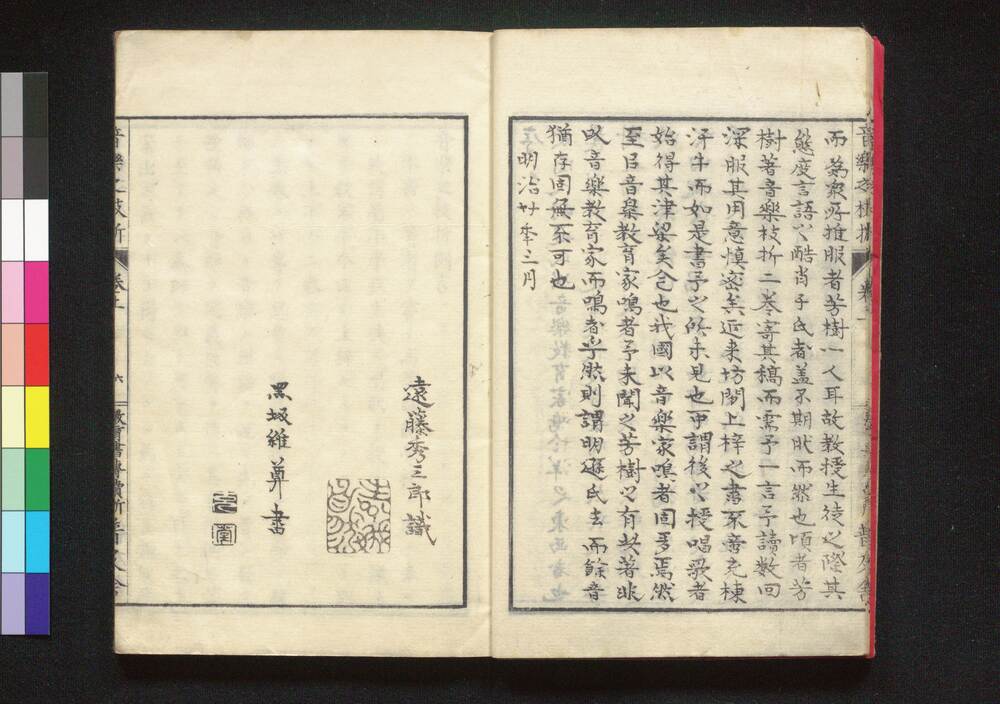 而為衆所推服者芳樹一人耳故教授生徒之際其
態度言語之酷肖子氏者蓋不期肰而然也頃者芳
樹著音樂枝折二巻寄其稿而需予一言予讀数回
深服其用意慎密矣近来坊間上梓之書不啻充棟
汗牛而如是書予之所未見也可謂後之授唱歌者
始得其津梁矣今也我國以音樂家鳴者固多焉然
至目音樂教育家鳴者予未聞之芳樹之有此著非
以音樂教育家而鳴者乎然則謂明遜氏去而餘音
猶存固無不可也
明治廿季三月
遠藤秀三郎識
黒坂維尊書